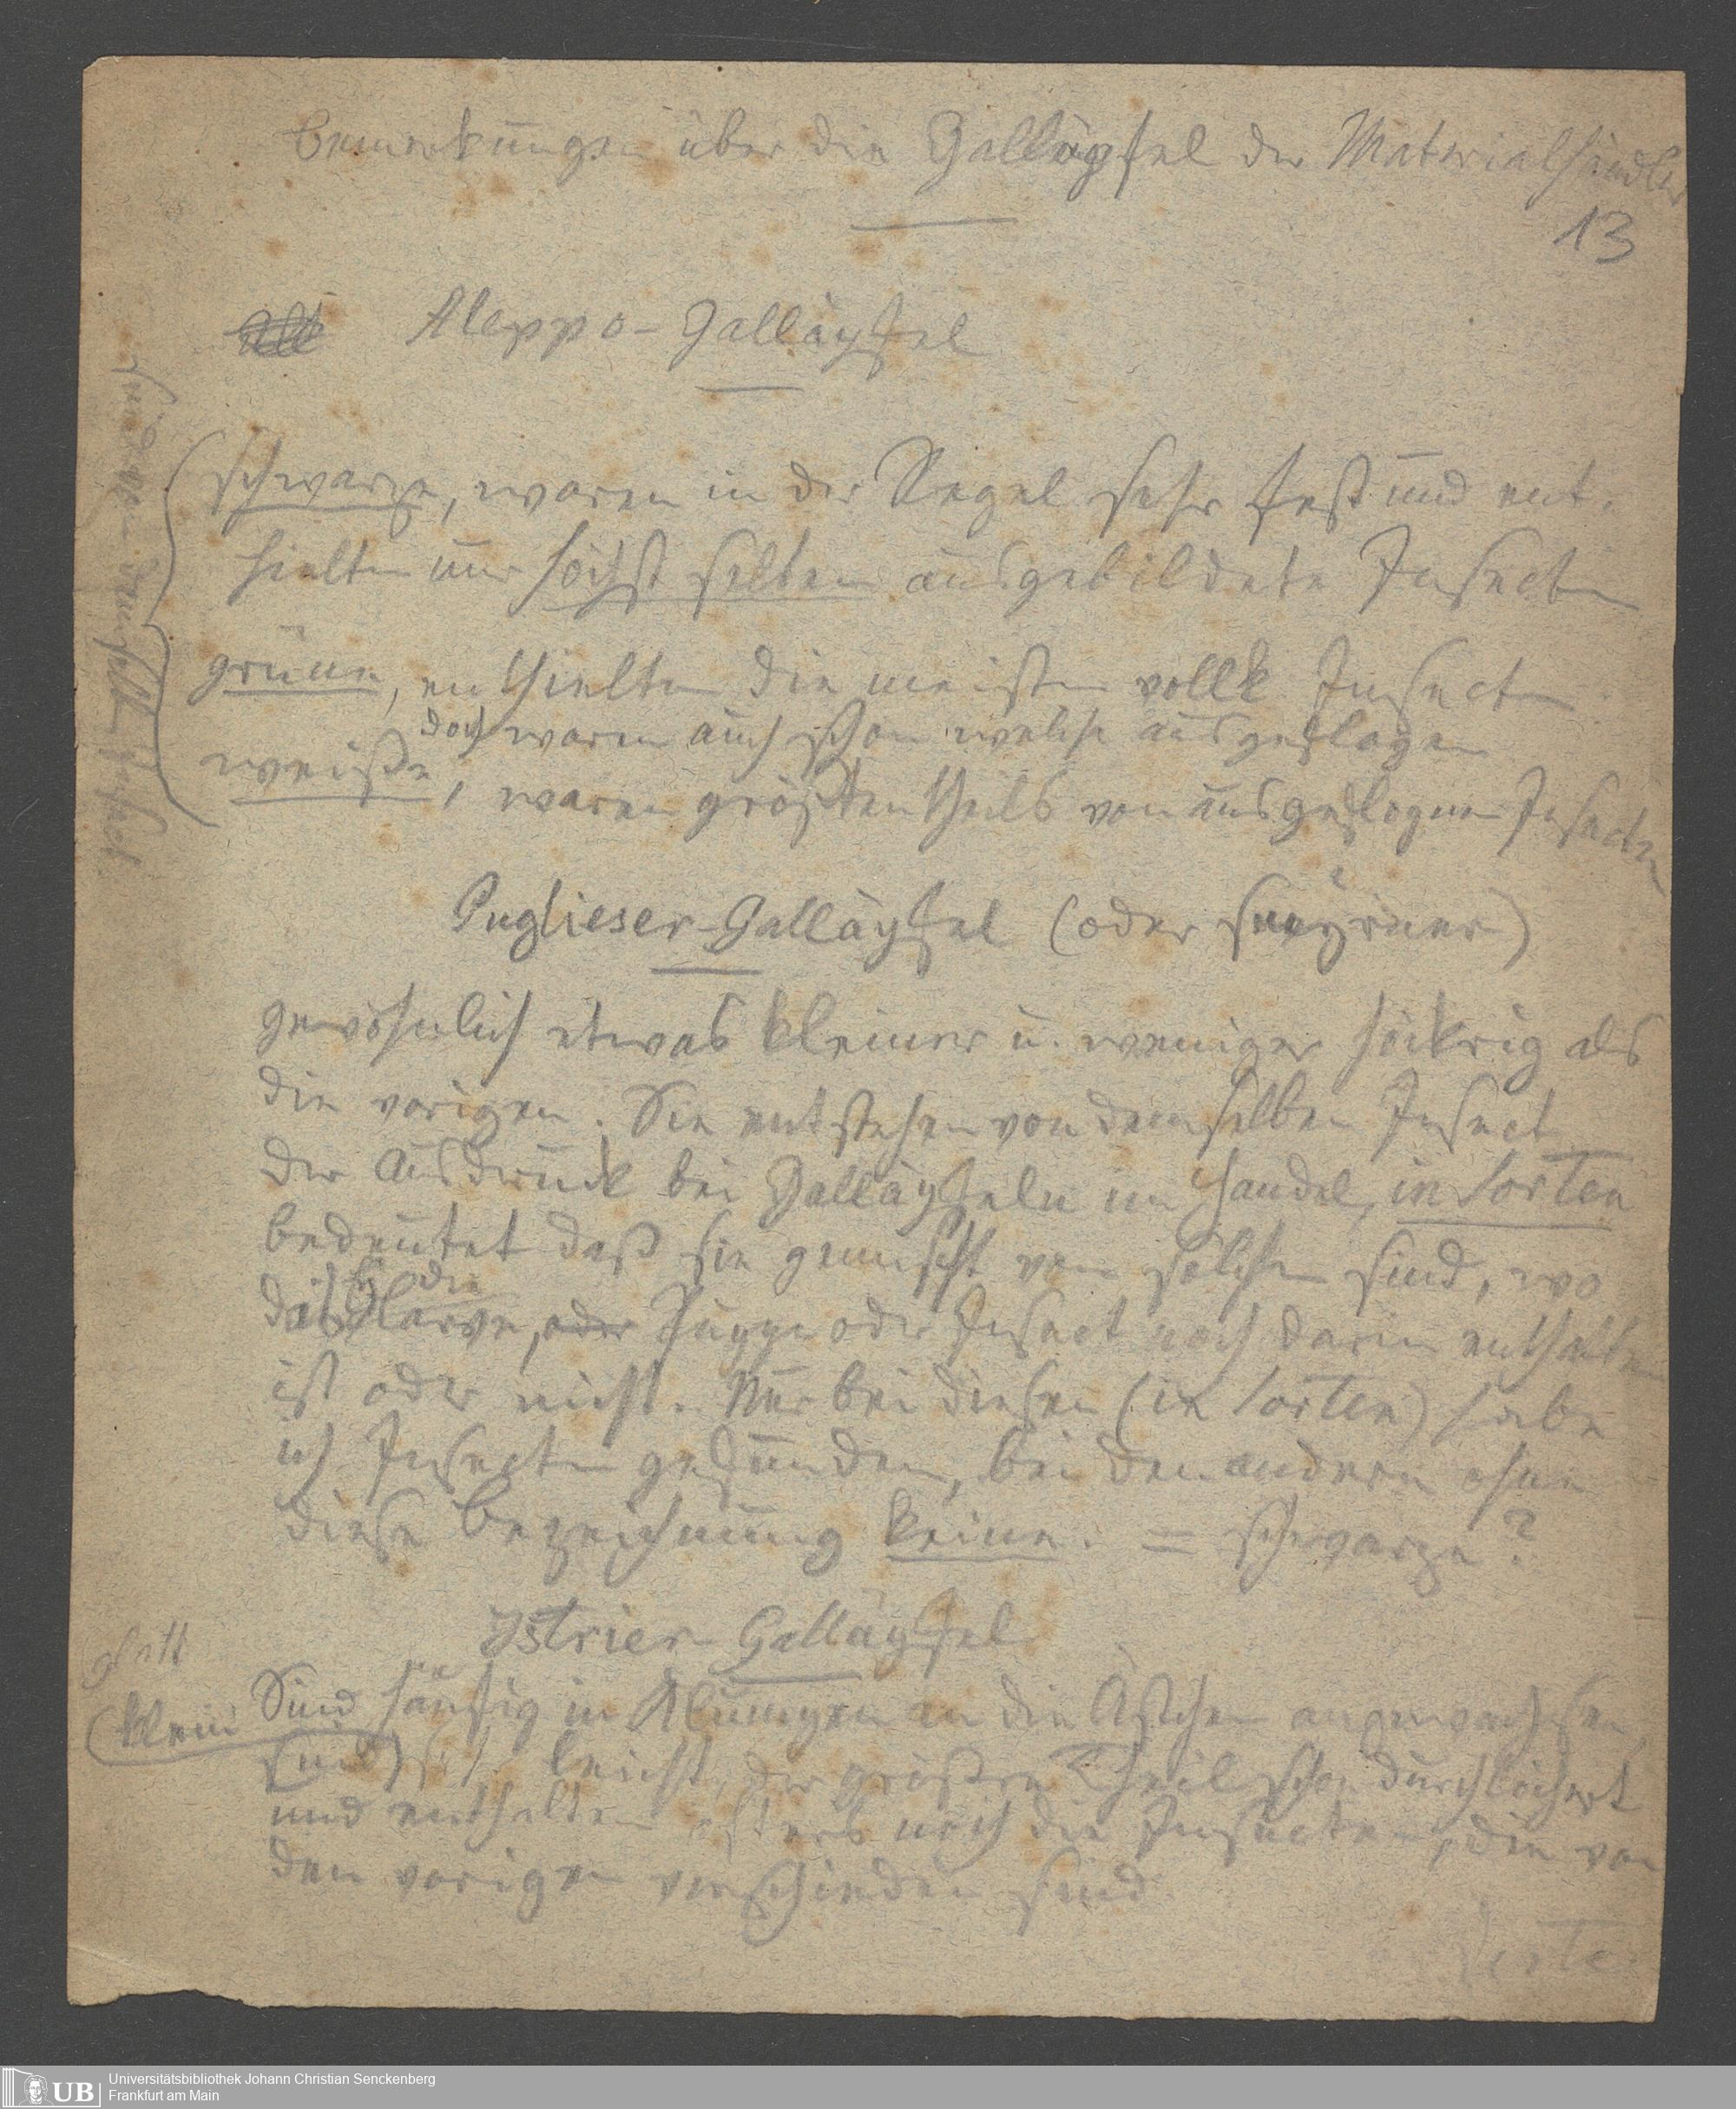 Bemerkungen über die Galläpfel der Materialhändler
13
Aleppo-Galläpfel
schwarze, waren in der Regel sehr fest und ent-
hielten nur höchst selten ausgebildete Insecten
grüne, enthielten die meisten vollk Insecten
doch waren auch schon welche ausgeflogen
weiße, waren größtentheils von ausgeflognen Insecten
sind von demselben Insect
Puglieser-Galläpfel (oder Smyrner)
gewöhnlich etwas kleiner u. weniger höckrig als
die vorigen. Sie entstehen von demselben Insect
Der Ausdruck bei Galläpfeln im Handel, in Sorten
bedeutet daß sie gemischt von solchen sind, wo
die
Larve, oder Puppe oder Insect noch darin enthalten
ist oder nicht. Nur bei diesen (in Sorten) habe
ich Insecten gefunden, bei den andern ohne
diese Bezeichnung keine. = schwarze?
Istrier-Galläpfel
glatt
klein
Sind häufig in Klumpen an die Ästchen angewachsen
sind leicht, der größere Theil schon durchlöchert
und enthalten öfters noch die Insecten, die von
den vorigen verschieden sind
Verte
Universitätsbibliothek Johann Christian Senckenberg
Frankfurt am Main
UB